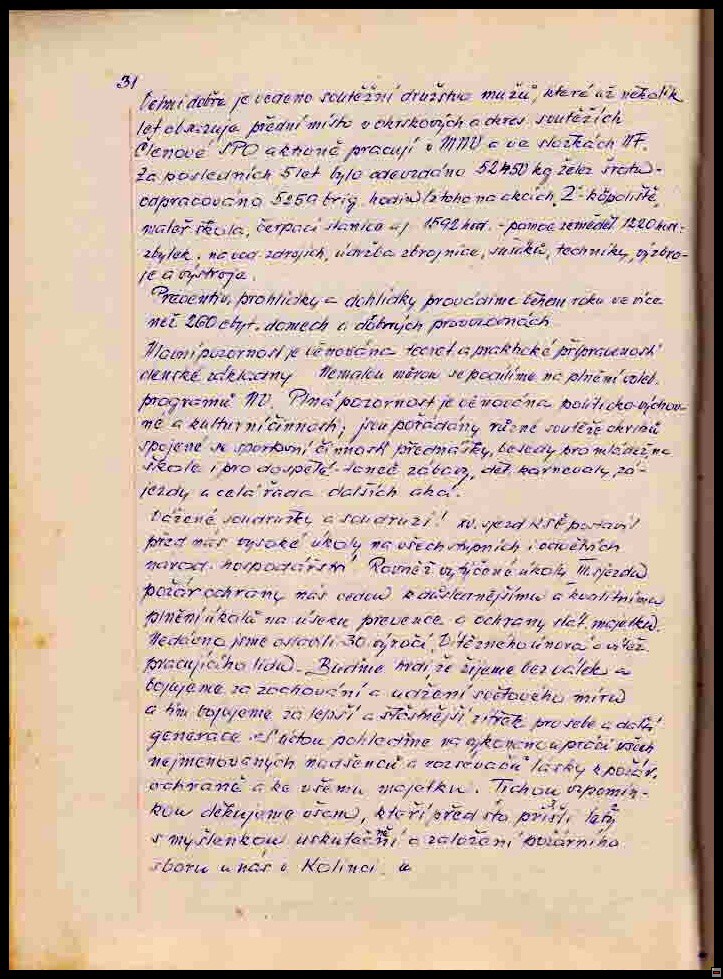 31
Velmi dobře je vedeno soutěžní družstvo mužů, které už několik
let obsazuje přední místo v okrskových a okres. soutěžích
Členové SPO aktivně pracují v MNV a ve složkách NF.
Za posledních 5 let bylo odevzdáno 52450 kg želez. šrotu -
odpracováno 5259 brig. hodin / z toho na akcích „Z“ - kůpaliště,
mateř. škola, čerpací stanice aj. 1592 hod. - pomoc zeměděl. 1220 hod. -
zbytek. na vod. zdrojích, údržba zbrojnice, sušáků, techniky, výzbro-
je a výstroje.
Preventiv. prohlídky a dohlídky provádíme během roku ve více
než 260 obyt. domech a drobných provozovnách
Hlavní pozornost je věnována teoret. a praktické připravenosti
členské základny Nemalou měrou se podílíme na plnění voleb.
programů NV. Plná pozornost je věnována politicko-výchov-
né a kulturní činnosti, jsou pořádány různé soutěže okrsků
spojené se sportovní činností přednášky, besedy pro mládež na
škole i pro dospělé - taneč. zábavy, dět. karnevaly, zá-
jezdy a celá řada dalších akcí.
Vážené soudružky a soudruzi! XV. sjezd KSČ postavil
před nás vysoké úkoly na všech stupních i odvětvích
národ. hospodářství. Rovněž vytýčené úkoly III. sjezdu
požár. ochrany nás vedou k důslednějšímu a kvalitnímu
plnění úkolů na úseku prevence a ochrany stát. majetku.
Nedávno jsme oslavili 30. výročí Vítězného února a vítěz.
pracujícího lidu. Buďme hrdi že žijeme bez válek a
bojujeme za zachování a udržení světového míru
a tím bojujeme za lepší a šťastnější zítřek pro sebe a další
generace. S úctou pohleďme na vykonanou práci všech
nejmenovaných nadšenců a rozsévačů lásky k požár.
ochraně a ke všemu majetku. Tichou vzpomín-
kou děkujeme všem, kteří před sto přišli lety
s myšlenkou uskutečnění a založení požárního
sboru u nás v Kolinci.